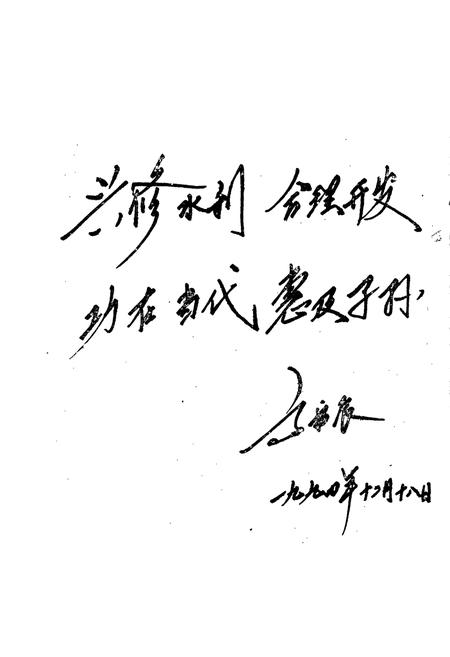 兴修水利 合理开发
功在当代 惠及子孙
一九九四年十二月十八日